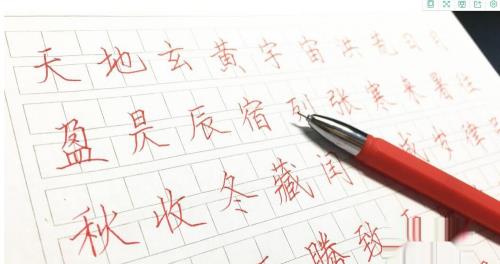 天地玄黄宇宙洪荒日月
盈昃辰宿列张寒来暑往
秋收冬藏闰成岁律
腾致